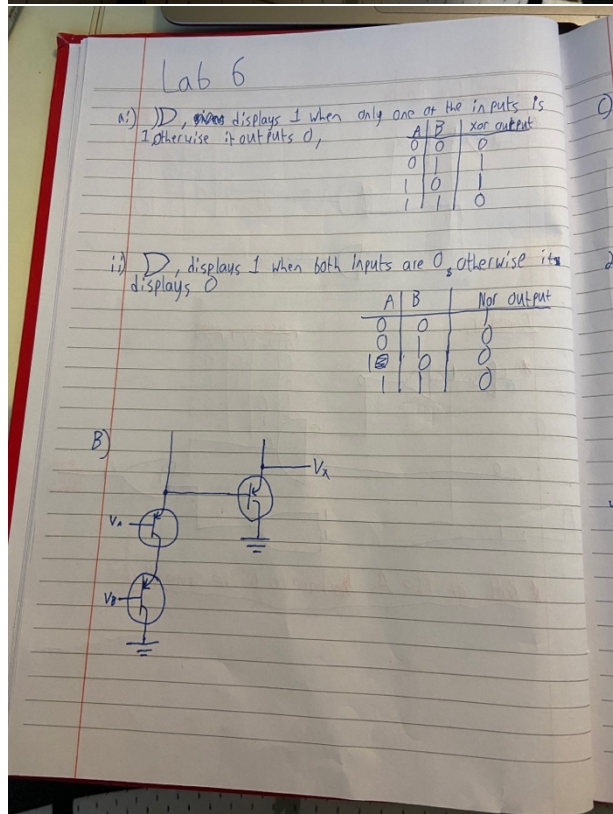 Lab 6
ai) , displays 1 when only one of the inputs is
1, otherwise it outputs 0,
A B Xor output
0 0 0
0 1 1
1 0 1
1 1 0
ii) , displays 1 when both inputs are 0, otherwise it
displays 0
A B Nor output
0 0 1
0 1 0
1 0 0
1 1 0
B)
Vx
VA
VB